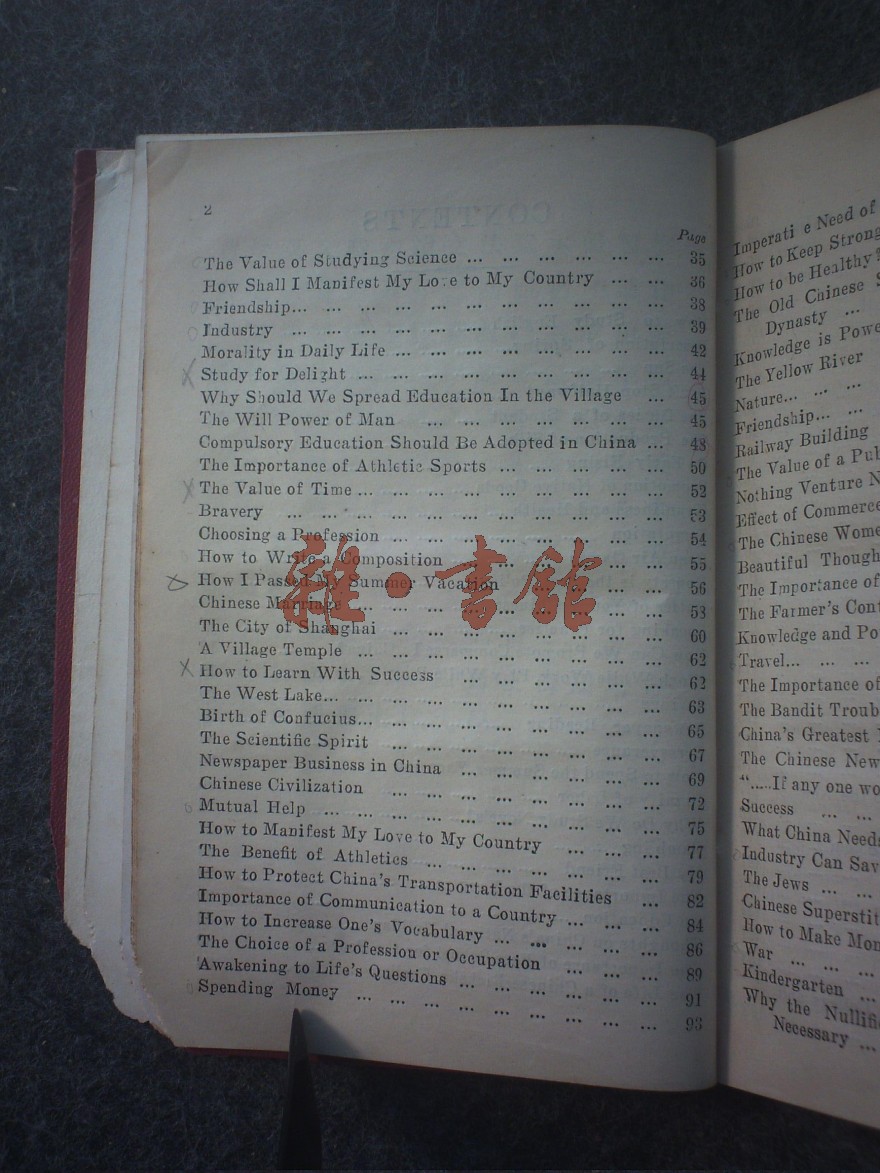 2
Page
The Value of Studying Science ... ... ... ... ... ... 35
How Shall I Manifest My Love to My Country ... ... 36
Friendship... ... ... ... ... ... ... ... ... ... ... 38
Industry ... ... ... ... ... ... ... ... ... ... ... 39
Morality in Daily Life ... ... ... ... ... ... ... ... 42
Study for Delight ... ... ... ... ... ... ... ... ... 44
Why Should We Spread Education In the Village ... 45
The Will Power of Man ... ... ... ... ... ... ... 45
Compulsory Education Should Be Adopted in China ... 48
The Importance of Athletic Sports ... ... ... ... ... 50
The Value of Time ... ... ... ... ... ... ... ... ... 52
Bravery ... ... ... ... ... ... ... ... ... ... ... 53
Choosing a Profession ... ... ... ... ... ... ... ... 54
How to Write a Composition ... ... ... ... ... ... 55
How I Passed My Summer Vacation ... ... ... ... 56
Chinese Marriage ... ... ... ... ... ... ... ... ... 58
The City of Shanghai ... ... ... ... ... ... ... ... 60
A Village Temple ... ... ... ... ... ... ... ... ... 62
How to Learn With Success ... ... ... ... ... ... 62
The West Lake... ... ... ... ... ... ... ... ... ... 63
Birth of Confucius... ... ... ... ... ... ... ... ... 65
The Scientific Spirit ... ... ... ... ... ... ... ... 67
Newspaper Business in China ... ... ... ... ... ... 69
Chinese Civilization ... ... ... ... ... ... ... ... 72
Mutual Help ... ... ... ... ... ... ... ... ... ... 75
How to Manifest My Love to My Country ... ... ... 77
The Benefit of Athletics ... ... ... ... ... ... ... 79
How to Protect China's Transportation Facilities ... 82
Importance of Communication to a Country ... ... ... 84
How to Increase One's Vocabulary ... ... ... ... ... 86
The Choice of a Profession or Occupation ... ... ... 89
Awakening to Life's Questions ... ... ... ... ... ... 91
Spending Money ... ... ... ... ... ... ... ... ... 93
雜·書館
Imperati e Need of
How to Keep Strong
How to be Healthy?
The Old Chinese
Dynasty ...
Knowledge is Powe
The Yellow River
Nature... ... ...
Friendship... ...
Railway Building
The Value of a Pub
Nothing Venture N
Effect of Commerce
The Chinese Wome
Beautiful Though
The Importance of
The Farmer's Cont
Knowledge and Po
Travel... ... ...
The Importance of
The Bandit Troub
China's Greatest
The Chinese New
".....If any one wo
Success ... ...
What China Needs
Industry Can Sav
The Jews ... ...
Chinese Superstit
How to Make Mon
War ... ... ...
Kindergarten ...
Why the Nullifi
Necessary ...